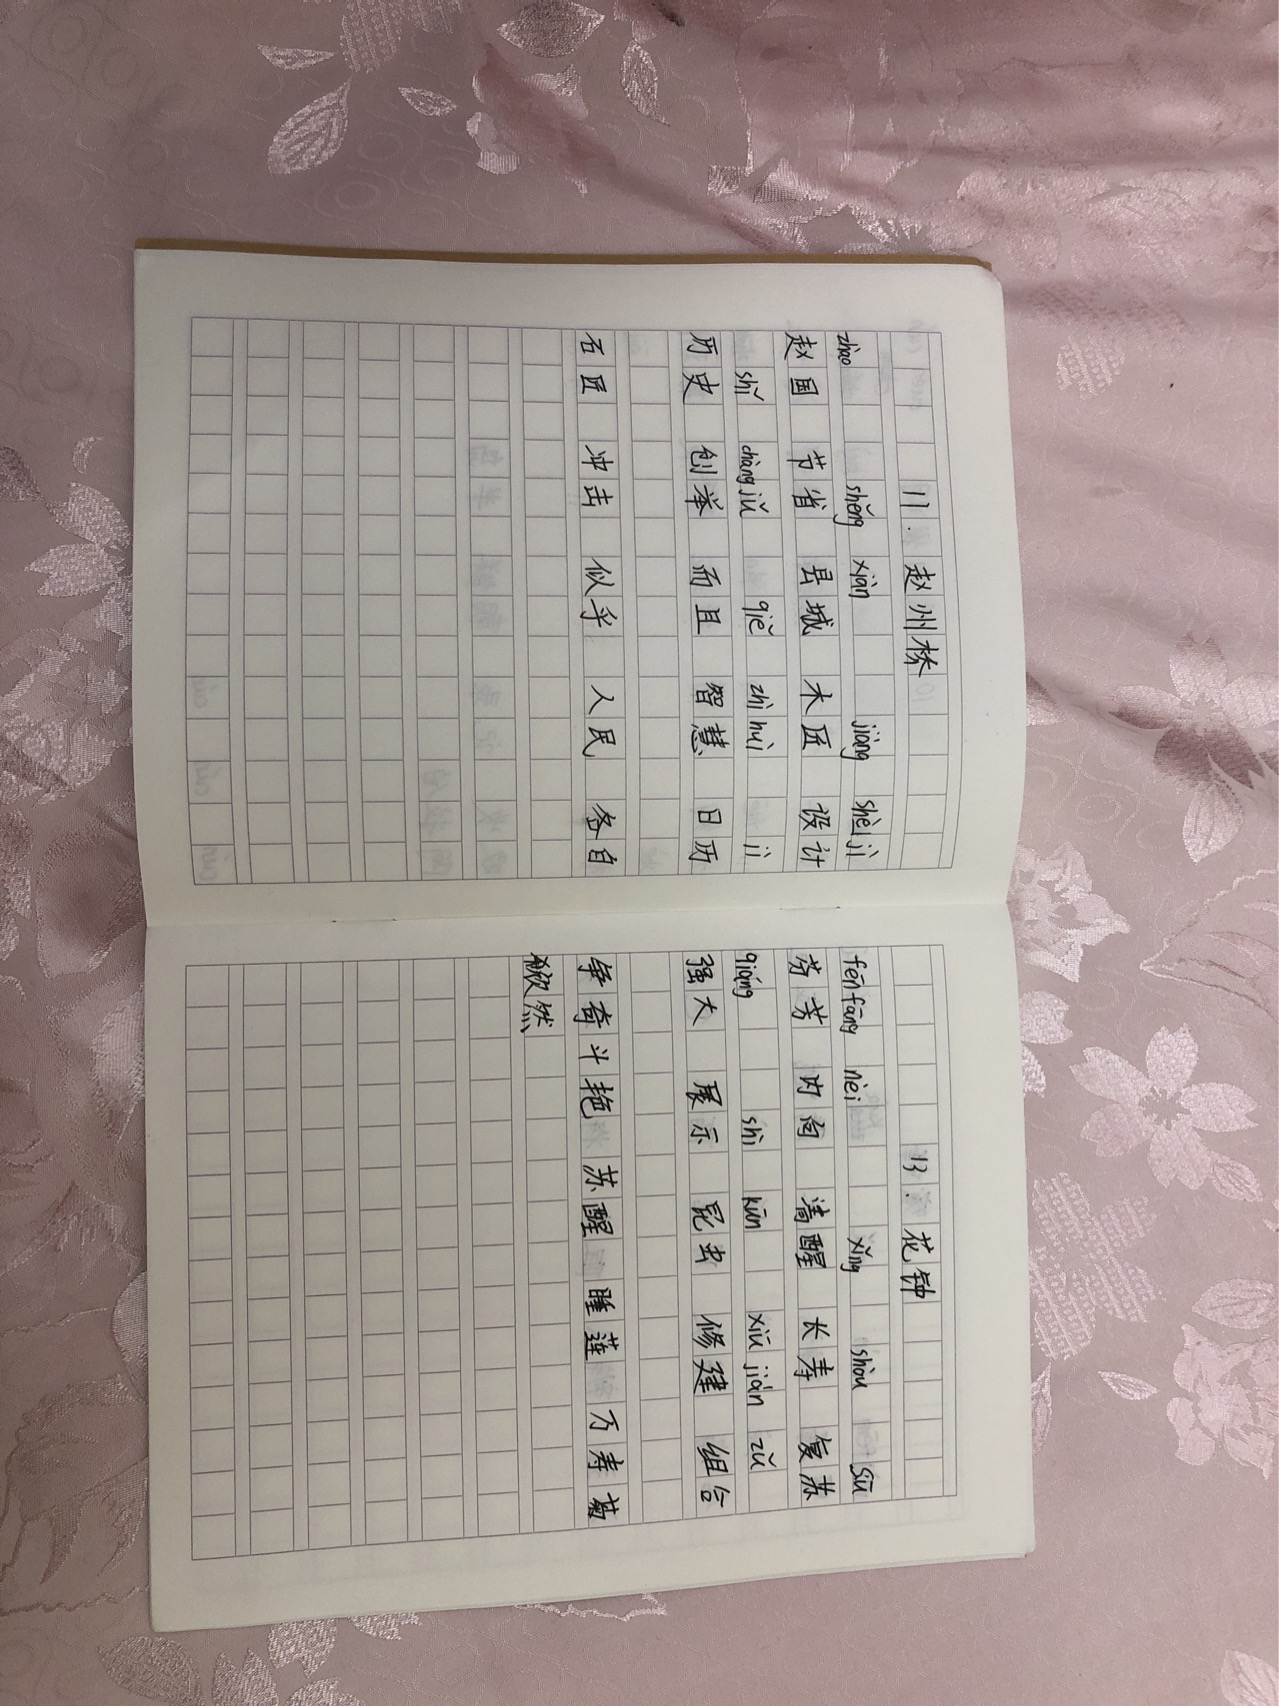 11. 赵州桥
zhào shěng xiàn jiàng shè jì
赵国 节省 县城 木匠 设计
shǐ chàng jǔ qiě zhì huì lì
历史 创举 而且 智慧 日历
石匠 冲击 似乎 人民 各自
13. 花钟
fēn fāng nèi xǐng shòu sū
芬芳 内向 清醒 长寿 复苏
qiáng shì kūn xiū jiàn zǔ
强大 展示 昆虫 修建 组合
争奇斗艳 苏醒 睡莲 万寿菊
欣然